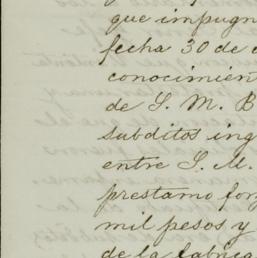 que impugn
fecha 30 de
conocimien
de S. M. B
subditos ing
entre S. M.
prestamo for
mil pesos y
de la fabrica